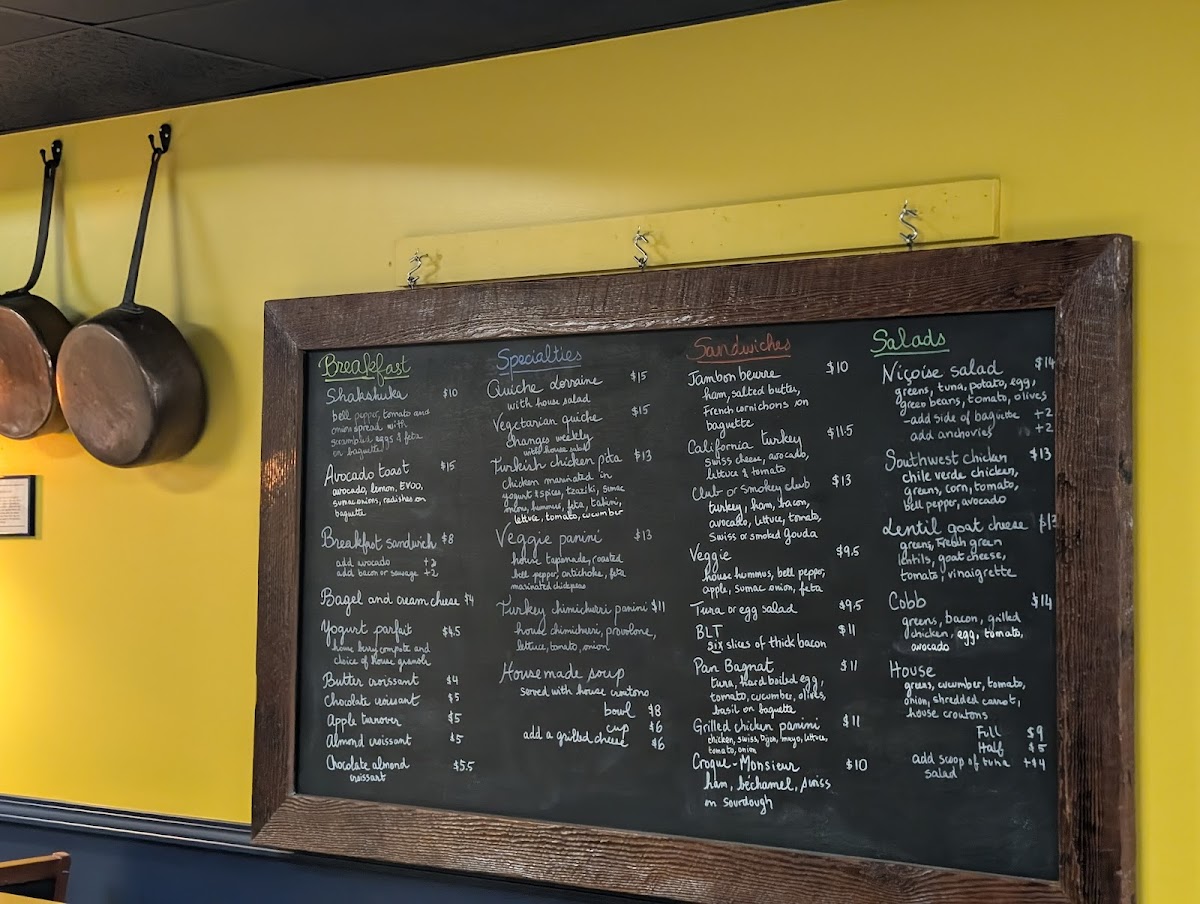 Breakfast
Shakshuka $10
bell pepper, tomato and
onion spread with
scrambled eggs & feta
on baguette
Avocado toast $15
avocado, lemon, EVOO,
sumac onions, radishes on
baguette
Breakfast sandwich $8
add avocado +2
add bacon or sausage +2
Bagel and cream cheese $4
Yogurt parfait $4.5
house berry compote and
choice of house granola
Butter croissant $4
Chocolate croissant $5
Apple turnover $5
Almond croissant $5
Chocolate almond $5.5
croissant
Specialties
Quiche Lorraine $15
with house salad
Vegetarian quiche $15
changes weekly
with house salad
Turkish chicken pita $13
chicken marinated in
yogurt & spices, tzaziki, sumac
onions, hummus, feta, tahini,
lettuce, tomato, cucumber
Veggie panini $13
house tapenade, roasted
bell pepper, artichoke, feta
marinated chickpeas
Turkey chimichurri panini $11
house chimichurri, provolone,
lettuce, tomato, onion
Housemade soup
served with house croutons
bowl $8
cup $6
add a grilled cheese $6
Sandwiches
Jambon beurre $10
ham, salted butter,
French cornichons on
baguette
California turkey $11.5
Swiss cheese, avocado,
lettuce & tomato
Club or Smokey club $13
turkey, ham, bacon,
avocado, lettuce, tomato,
Swiss or smoked gouda
Veggie $9.5
house hummus, bell pepper,
apple, sumac onion, feta
Tuna or egg salad $9.5
BLT $11
six slices of thick bacon
Pan Bagnat $11
tuna, hard boiled egg,
tomato, cucumber, olives,
basil on baguette
Grilled chicken panini $11
chicken, swiss, Dijon, mayo, lettuce,
tomato, onion
Croque-Monsieur $10
ham, béchamel, swiss
on sourdough
Salads
Niçoise salad $14
greens, tuna, potato, egg,
green beans, tomato, olives
-add side of baguette +2
add anchovies +2
Southwest chicken $13
chile verde, chicken,
greens, corn, tomato,
bell pepper, avocado
Lentil goat cheese $13
greens, French green
lentils, goat cheese,
tomato, vinaigrette
Cobb $14
greens, bacon, grilled
chicken, egg, tomato,
avocado
House
greens, cucumber, tomato,
onion, shredded carrot,
house croutons
Full $9
Half $5
add scoop of tuna +$4
salad